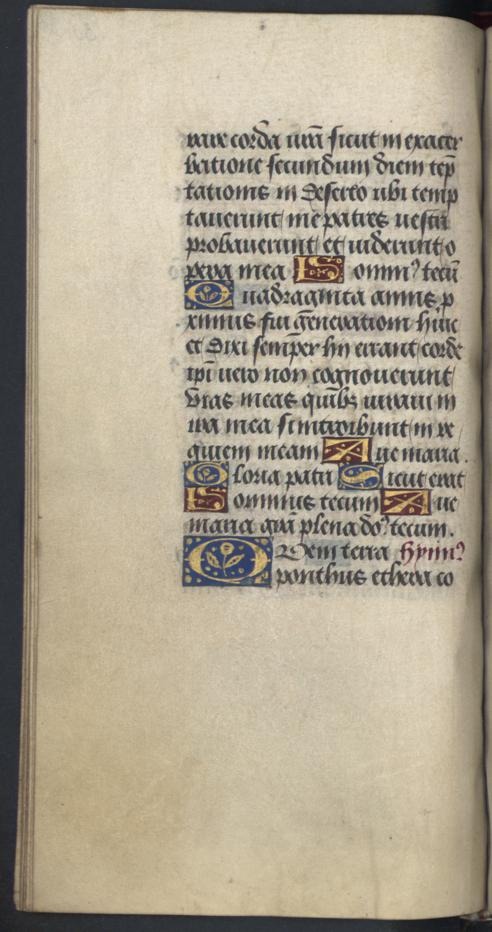 rare corda vr̄a sicut in exacer
batione secundum diem tēp
tationis in deserto ubi temp
taverunt me patres vestri
probaverunt et viderunt o
pera mea Domin⁹ tecū
Quadraginta annis p
ximus fui generationi huic
et dixi semper hii errant corde
ipi vero non cognoverunt
vias meas quib⁹ iuravi in
ira mea si introibunt in re
quiem meam Ave maria.
Gloria patri Sicut erat
Dominus tecum Ave
maria gr̄a plena do⁹ tecum.
Quem terra hymn⁹
ponthus ethera co